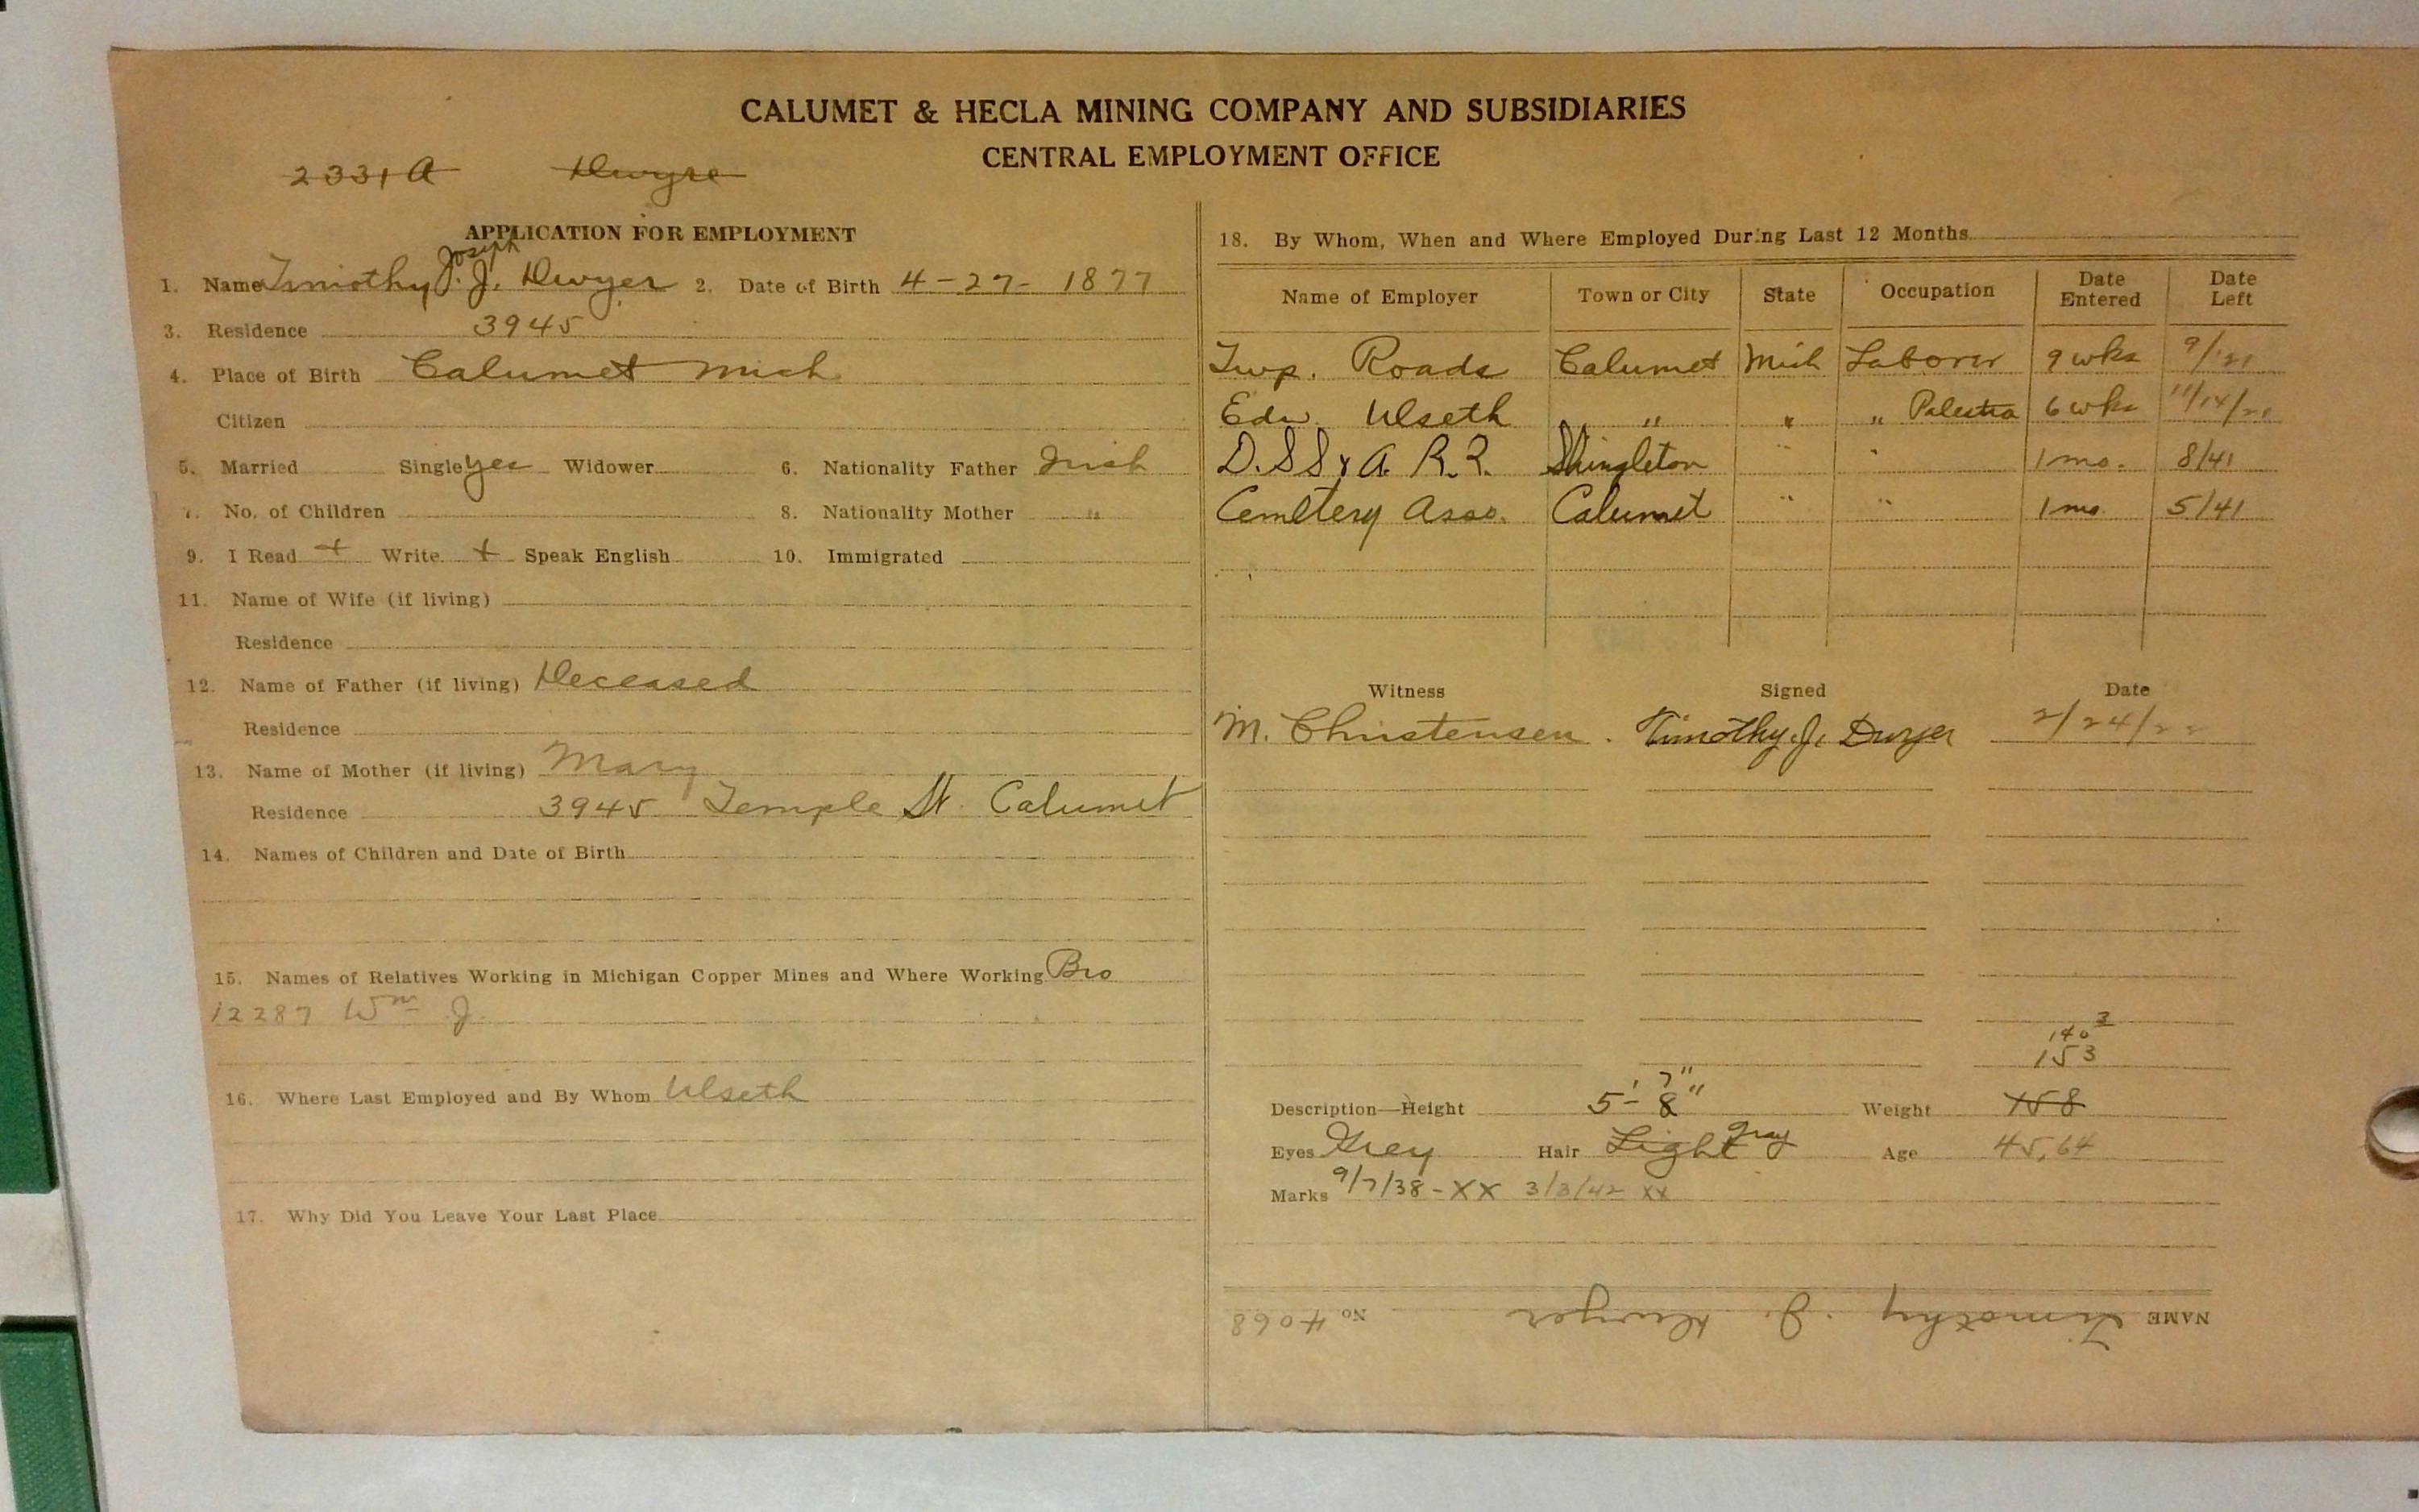 CALUMET & HECLA MINING COMPANY AND SUBSIDIARIES
CENTRAL EMPLOYMENT OFFICE
2331 A Dwyre
APPLICATION FOR EMPLOYMENT
Joseph
1. Name Timothy J. Dwyer 2. Date of Birth 4-27-1877
3. Residence 3945
4. Place of Birth Calumet Mich
Citizen
5. Married Single yes Widower 6. Nationality Father Irish
7. No. of Children 8. Nationality Mother "
9. I Read + Write + Speak English 10. Immigrated
11. Name of Wife (if living)
Residence
12. Name of Father (if living) Deceased
Residence
13. Name of Mother (if living) Mary
Residence 3945 Temple St. Calumet
14. Names of Children and Date of Birth
15. Names of Relatives Working in Michigan Copper Mines and Where Working Bro
12287 Wm J.
16. Where Last Employed and By Whom Ulseth
17. Why Did You Leave Your Last Place
18. By Whom, When and Where Employed During Last 12 Months
Name of Employer Town or City State Occupation Date Entered Date Left
Twp. Roads Calumet Mich Laborer 9 wks 9/21
Edw. Ulseth " " " Palestra 6 wks 11/14/21
D.S.S & A. R.R. Shingleton " " 1 mo. 8/41
Cemetery Asso. Calumet " " 1 mo. 5/41
Witness Signed Date
M. Christensen. Timothy J. Dwyer 2/24/22
140
153
7"
Description—Height 5'-8" Weight 158
Eyes Grey Hair Light gray Age 45, 64
Marks 9/7/38-XX 3/3/42 XX
NAME Timothy J. Dwyer No 4068